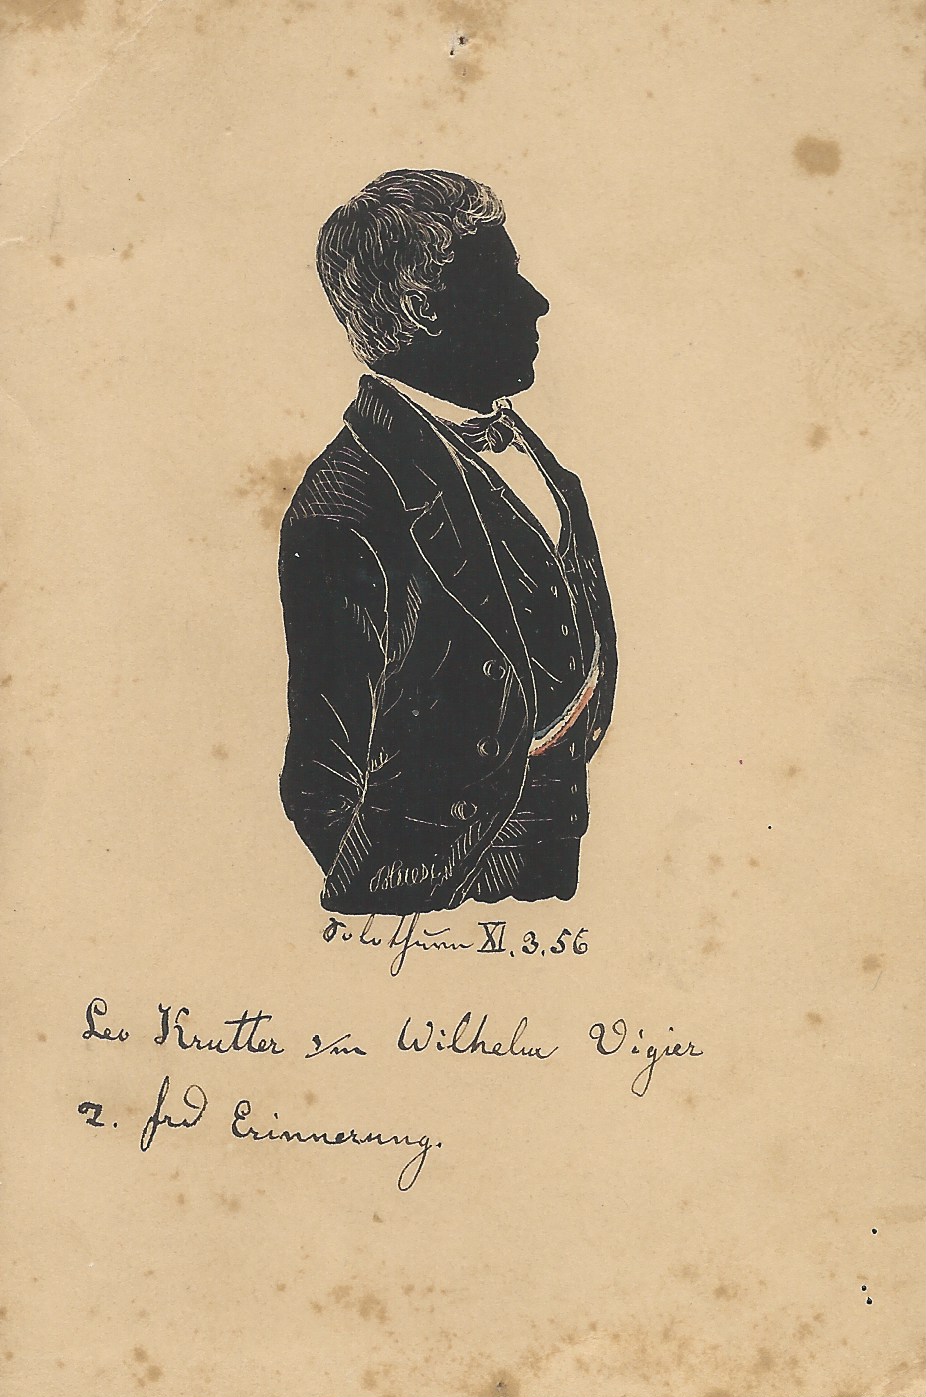 Solothurn XI. 3. 56
Leo Krutter s/m Wilhelm Vigier
z. frd Erinnerung.